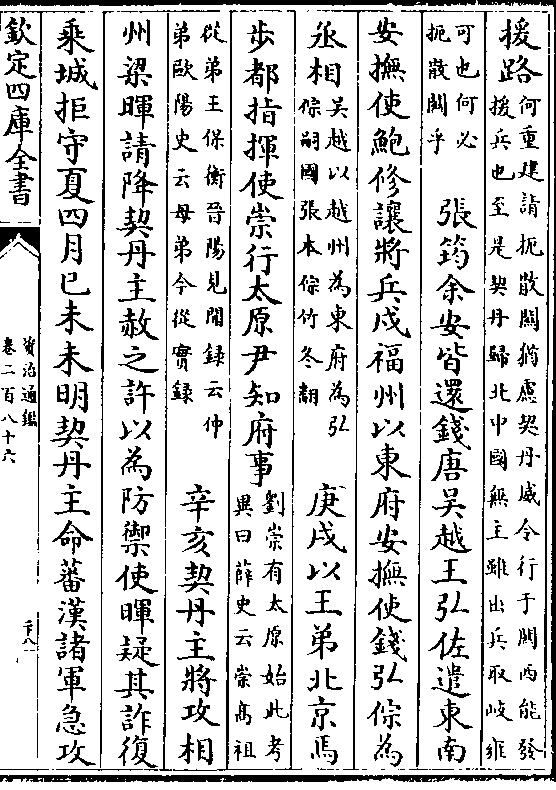 援路何重建請扼散關猶慮契丹威令行于關西能發
援兵也至是契丹歸北中國無主雖出兵取岐雍
可也何必
扼散關乎
張筠余安皆還錢唐吳越王弘佐遣東南
安撫使鮑修讓將兵戍福州以東府安撫使錢弘倧為
丞相吳越以越州為東府為弘
倧嗣國張本倧竹冬翻
庚戌以王弟北京馬
步都指揮使崇行太原尹知府事劉崇有太原始此考
異曰薛史云崇高祖
從弟王保衡晉陽見聞録云仲
弟歐陽史云母弟今從實録
辛亥契丹主將攻相
州梁暉請降契丹主赦之許以為防禦使暉疑其詐復
乘城拒守夏四月已未未明契丹主命蕃漢諸軍急攻
欽定四庫全書
資治通鑑
卷二百八十六